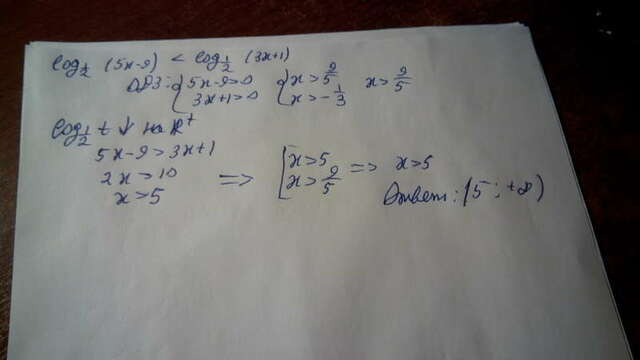 log½ (5x-9) < log½ (3x+1)
ОДЗ: { 5x-9>0 { x>9/5 x>9/5
3x+1>0 x>-1/3
log½ t ↓ на R⁺
5x-9>3x+1
2x>10
x>5
=> [ x>5 => x>5
x>9/5
Ответ: (5; +∞)